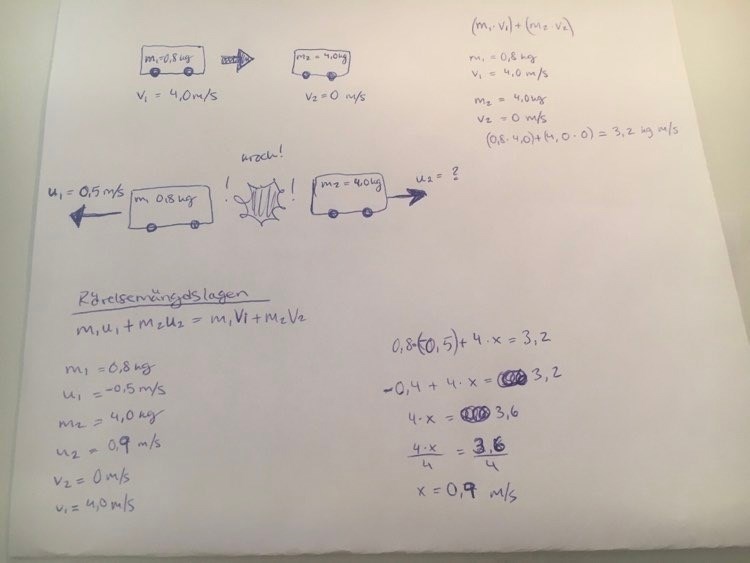 m₁=0,8kg
m₂ = 4,0kg
v₁ = 4,0 m/s
v₂ = 0 m/s
(m₁·v₁)+(m₂·v₂)
m₁ = 0,8kg
v₁ = 4,0 m/s
m₂ = 4,0kg
v₂ = 0 m/s
(0,8·4,0)+(4,0·0) = 3,2 kg m/s
krasch!
u₁ = 0,5 m/s
m₁ 0,8kg
! !
m₂ = 4,0kg
u₂ = ?
Rörelsemängdslagen
m₁u₁ + m₂u₂ = m₁v₁ + m₂v₂
m₁ = 0,8kg
u₁ = -0,5 m/s
m₂ = 4,0kg
u₂ = 0,9 m/s
v₂ = 0 m/s
v₁ = 4,0 m/s
0,8·(-0,5) + 4·x = 3,2
-0,4 + 4·x = 3,2
4·x = 3,6
4·x/4 = 3,6/4
x = 0,9 m/s